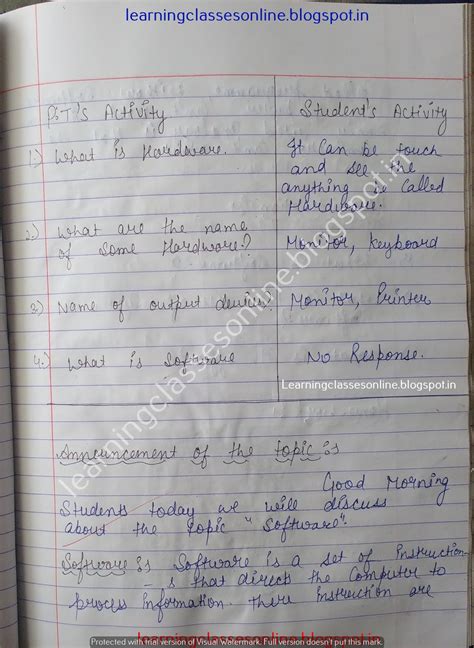 learningclassesonline.blogspot.in
P.T's Activity
Student's Activity
1.) What is Hardware.
It Can be touch
and see the
anything is Called
Hardware.
2.) What are the name
of Some Hardware?
Monitor, Keyboard
3.) Name of output devices?
Monitor, Printer
4.) What is Software
No Response.
Learningclassesonline.blogspot.in
learningclassesonline.blogspot.in
Announcement of the topic :s
Good Morning
Students today we will discuss
about the topic "Software".
Software :s Software is a set of Instruction
- s that directs the Computer to
process Information. There Instruction are
Protected with trial version of Visual Watermark. Full version doesn't put this mark.
learningclassesonline.blogspot.in